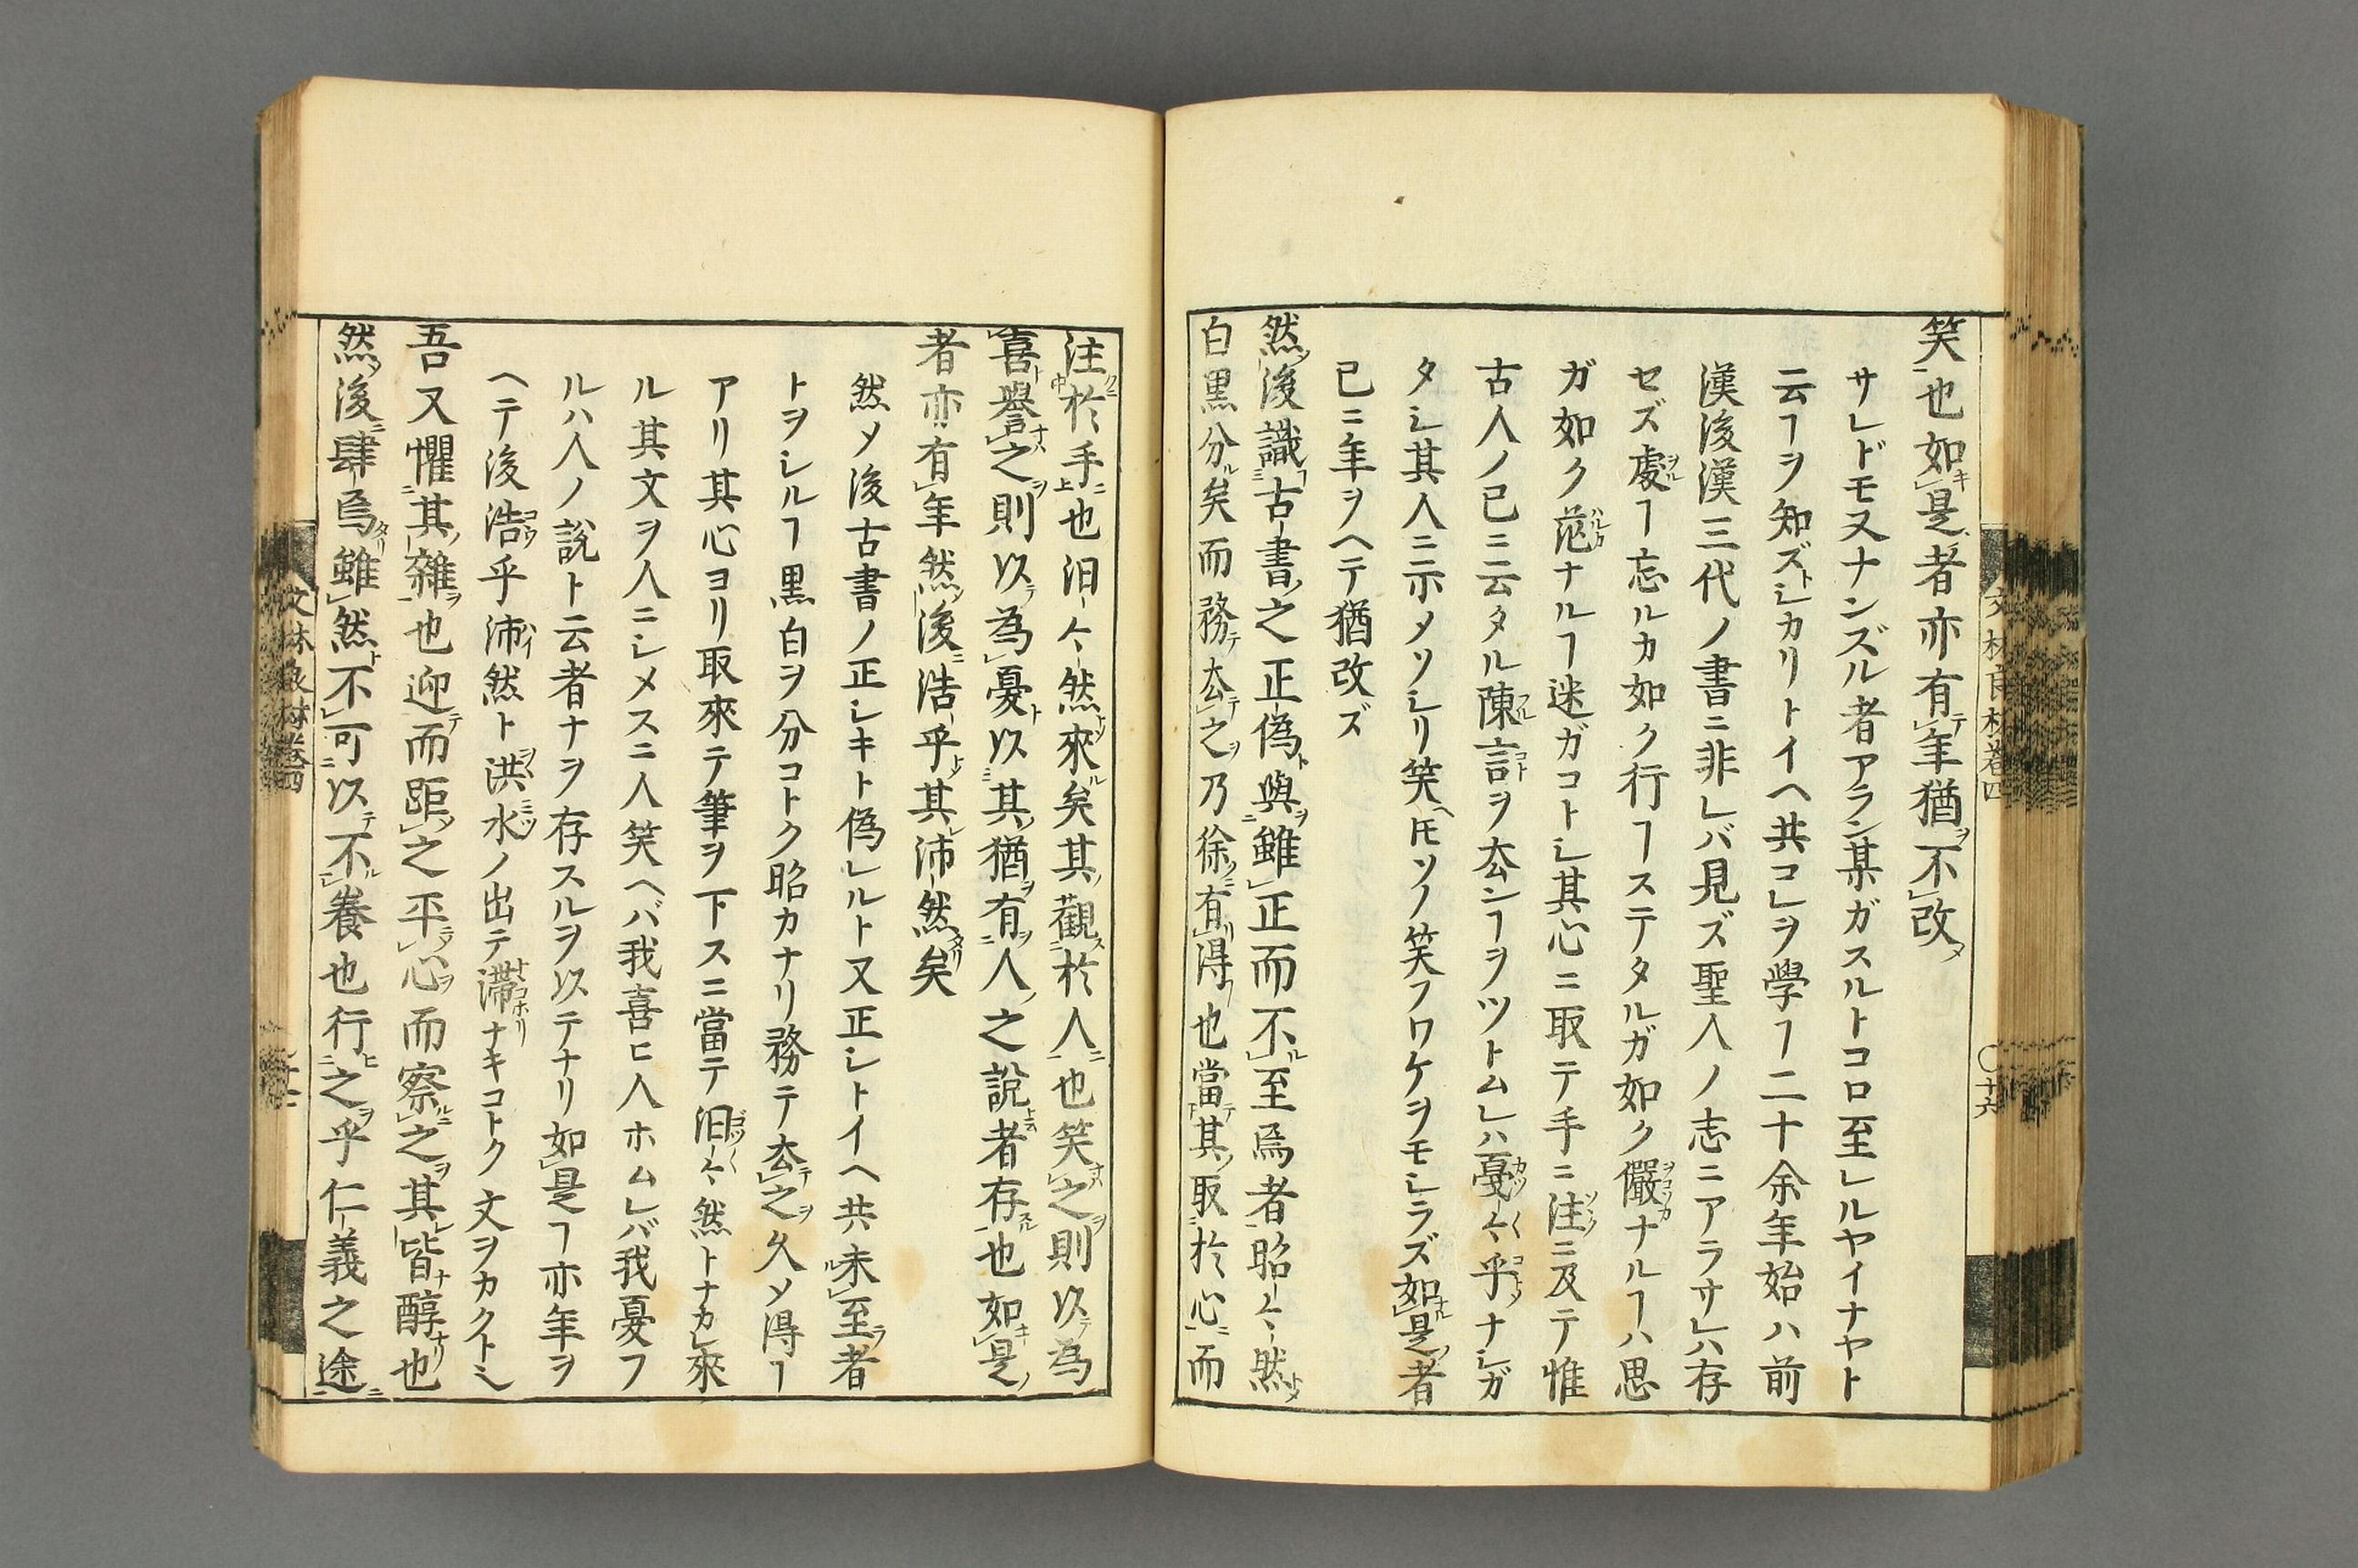 笑也如是者亦有年猶不改
サレドモ又ナンズル者アラン某ガスルトコロ至レルヤイナヤト
云ヿヲ知ズトシカリトイヘ共コレヲ學ヿ二十余年始ハ前
漢後漢三代ノ書ニ非レバ見ズ聖人ノ志ニアラサレハ存
セズ處ヿ忘ルカ如ク行ヿステタルガ如ク儼ナルヿハ思
ガ如ク茫ナルヿ迷ガコトシ其心ニ取テ手ニ注ニ及テ惟
古人ノ已ニ云タル陳言ヲ厺ンヿヲツトムレハ戛〻乎ナシガ
タシ其人ニ示メソシリ笑ヘ𪜈ソノ笑フワケヲモシラズ如是者
已ニ年ヲヘテ猶改ズ
然後識古書之正偽與雖正而不至焉者昭〻然
白黒分矣而務厺之乃徐有得也當其取於心而
注於手也汩〻然來矣其觀於人也笑之則以為
喜譽之則以為憂以其猶有人之說者存也如是
者亦有年然後浩乎其沛然矣
然メ後古書ノ正シキト偽レルト又正シトイヘ共未至者
トヲシルヿ黒白ヲ分コトク昭カナリ務テ厺之久メ得ヿ
アリ其心ヨリ取來テ筆ヲ下スニ當テ汩〻然トナカレ來
ル其文ヲ人ニシメスニ人笑ヘバ我喜ヒ人ホムレバ我憂フ
ルハ人ノ說ト云者ナヲ存スルヲ以テナリ如是ヿ亦年ヲ
ヘテ後浩乎沛然ト洪水ノ出テ滯ナキコトク文ヲカクトミ
吾又懼其雜也迎而距之平心而察之其皆醇也
然後肆焉雖然不可以不養也行之乎仁義之途
文林良材巻四
文林良材巻四
〇十六